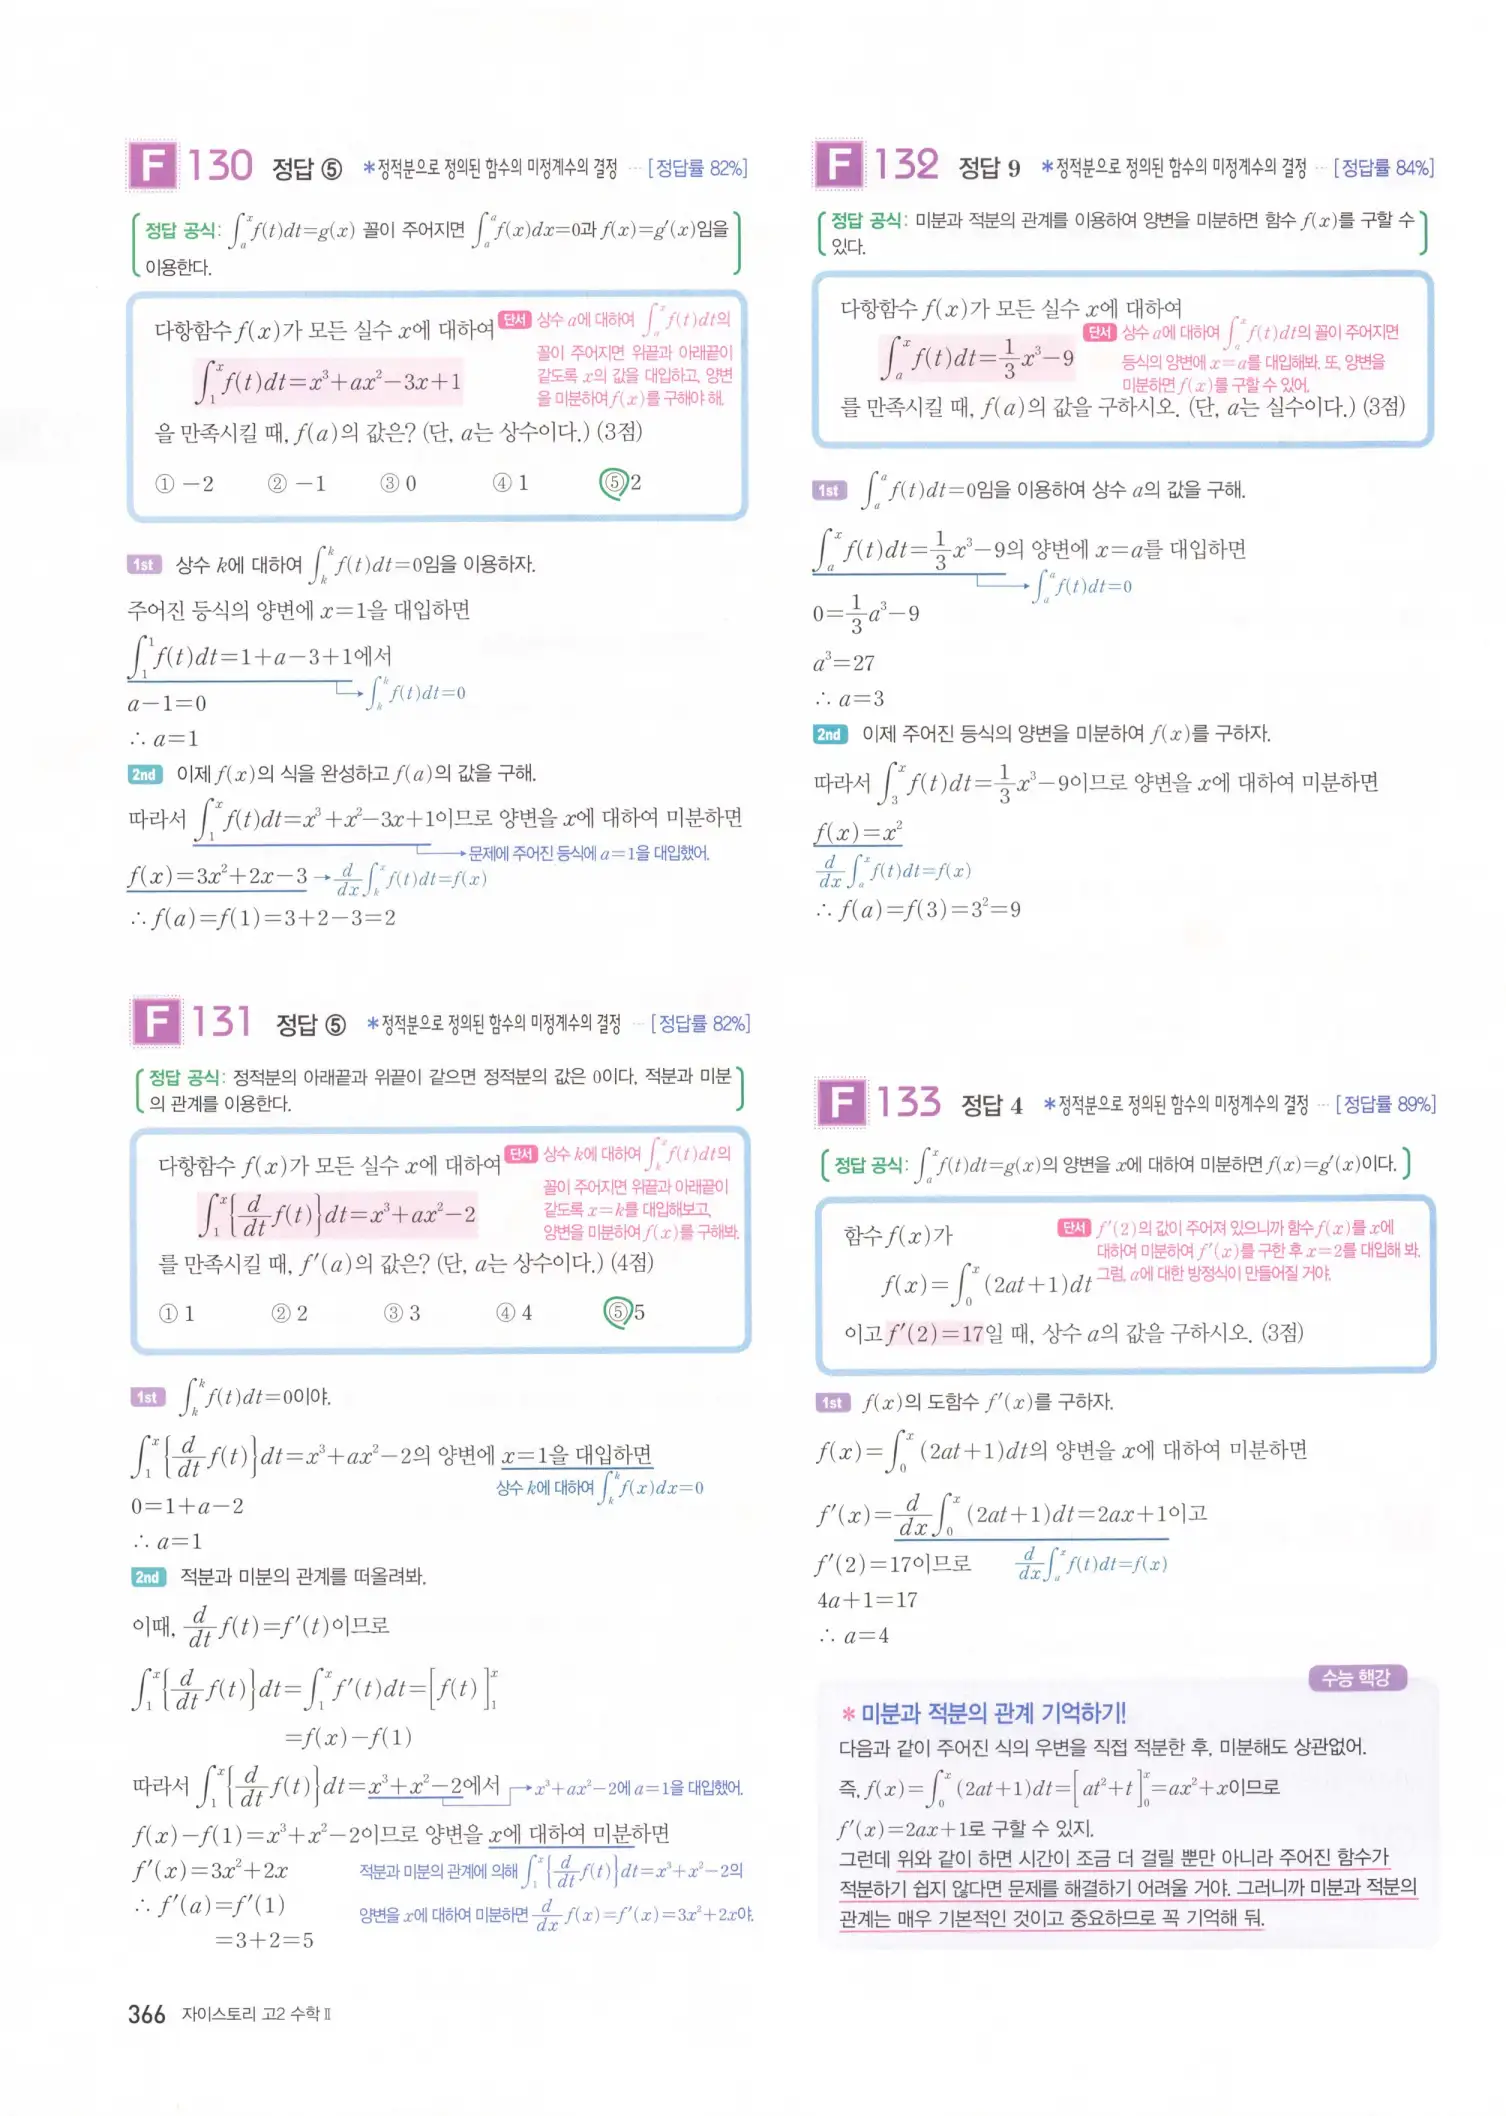 F 130 정답 ⑤ *정적분으로 정의된 함수의 미정계수의 결정 ··· [정답률 82%]
정답 공식: ∫ₐˣ f(t)dt=g(x) 꼴이 주어지면 ∫ₐᵃ f(x)dx=0과 f(x)=g′(x)임을
이용한다.
다항함수 f(x)가 모든 실수 x에 대하여
∫₁ˣ f(t)dt=x³+ax²−3x+1
단서 상수 a에 대하여 ∫ₐˣ f(t)dt의
꼴이 주어지면 위끝과 아래끝이
같도록 x의 값을 대입하고, 양변
을 미분하여 f(x)를 구해야 해.
을 만족시킬 때, f(a)의 값은? (단, a는 상수이다.) (3점)
① −2 ② −1 ③ 0 ④ 1 ⑤ 2
1st 상수 k에 대하여 ∫ₖᵏ f(t)dt=0임을 이용하자.
주어진 등식의 양변에 x=1을 대입하면
∫₁¹ f(t)dt=1+a−3+1에서
→ ∫ₖᵏ f(t)dt=0
a−1=0
∴ a=1
2nd 이제 f(x)의 식을 완성하고 f(a)의 값을 구해.
따라서 ∫₁ˣ f(t)dt=x³+x²−3x+1이므로 양변을 x에 대하여 미분하면
→ 문제에 주어진 등식에 a=1을 대입했어.
f(x)=3x²+2x−3 → d/dx ∫ₖˣ f(t)dt=f(x)
∴ f(a)=f(1)=3+2−3=2
F 131 정답 ⑤ *정적분으로 정의된 함수의 미정계수의 결정 ··· [정답률 82%]
정답 공식: 정적분의 아래끝과 위끝이 같으면 정적분의 값은 0이다, 적분과 미분
의 관계를 이용한다.
다항함수 f(x)가 모든 실수 x에 대하여
∫₁ˣ {d/dt f(t)}dt=x³+ax²−2
단서 상수 k에 대하여 ∫ₖˣ f(t)dt의
꼴이 주어지면 위끝과 아래끝이
같도록 x=k를 대입해보고,
양변을 미분하여 f(x)를 구해봐.
를 만족시킬 때, f′(a)의 값은? (단, a는 상수이다.) (4점)
① 1 ② 2 ③ 3 ④ 4 ⑤ 5
1st ∫ₖᵏ f(t)dt=0이야.
∫₁ˣ {d/dt f(t)}dt=x³+ax²−2의 양변에 x=1을 대입하면
상수 k에 대하여 ∫ₖᵏ f(x)dx=0
0=1+a−2
∴ a=1
2nd 적분과 미분의 관계를 떠올려봐.
이때, d/dt f(t)=f′(t)이므로
∫₁ˣ {d/dt f(t)}dt=∫₁ˣ f′(t)dt=[f(t)]₁ˣ
=f(x)−f(1)
따라서 ∫₁ˣ {d/dt f(t)}dt=x³+x²−2에서 → x³+ax²−2에 a=1을 대입했어.
f(x)−f(1)=x³+x²−2이므로 양변을 x에 대하여 미분하면
f′(x)=3x²+2x
적분과 미분의 관계에 의해 ∫₁ˣ {d/dt f(t)}dt=x³+x²−2의
양변을 x에 대하여 미분하면 d/dx f(x)=f′(x)=3x²+2x야.
∴ f′(a)=f′(1)
=3+2=5
F 132 정답 9 *정적분으로 정의된 함수의 미정계수의 결정 ··· [정답률 84%]
정답 공식: 미분과 적분의 관계를 이용하여 양변을 미분하면 함수 f(x)를 구할 수
있다.
다항함수 f(x)가 모든 실수 x에 대하여
∫ₐˣ f(t)dt=1/3 x³−9
단서 상수 a에 대하여 ∫ₐˣ f(t)dt의 꼴이 주어지면
등식의 양변에 x=a를 대입해봐. 또, 양변을
미분하면 f(x)를 구할 수 있어.
를 만족시킬 때, f(a)의 값을 구하시오. (단, a는 실수이다.) (3점)
1st ∫ₐᵃ f(t)dt=0임을 이용하여 상수 a의 값을 구해.
∫ₐˣ f(t)dt=1/3 x³−9의 양변에 x=a를 대입하면
→ ∫ₐᵃ f(t)dt=0
0=1/3 a³−9
a³=27
∴ a=3
2nd 이제 주어진 등식의 양변을 미분하여 f(x)를 구하자.
따라서 ∫₃ˣ f(t)dt=1/3 x³−9이므로 양변을 x에 대하여 미분하면
f(x)=x²
d/dx ∫ₐˣ f(t)dt=f(x)
∴ f(a)=f(3)=3²=9
F 133 정답 4 *정적분으로 정의된 함수의 미정계수의 결정 ··· [정답률 89%]
정답 공식: ∫ₐˣ f(t)dt=g(x)의 양변을 x에 대하여 미분하면 f(x)=g′(x)이다.
함수 f(x)가
f(x)=∫₀ˣ (2at+1)dt
단서 f′(2)의 값이 주어져 있으니까 함수 f(x)를 x에
대하여 미분하여 f′(x)를 구한 후 x=2를 대입해 봐.
그럼, a에 대한 방정식이 만들어질 거야.
이고 f′(2)=17일 때, 상수 a의 값을 구하시오. (3점)
1st f(x)의 도함수 f′(x)를 구하자.
f(x)=∫₀ˣ (2at+1)dt의 양변을 x에 대하여 미분하면
f′(x)=d/dx ∫₀ˣ (2at+1)dt=2ax+1이고
f′(2)=17이므로 d/dx ∫ₐˣ f(t)dt=f(x)
4a+1=17
∴ a=4
수능 핵강
* 미분과 적분의 관계 기억하기!
다음과 같이 주어진 식의 우변을 직접 적분한 후, 미분해도 상관없어.
즉, f(x)=∫₀ˣ (2at+1)dt=[at²+t]₀ˣ=ax²+x이므로
f′(x)=2ax+1로 구할 수 있지.
그런데 위와 같이 하면 시간이 조금 더 걸릴 뿐만 아니라 주어진 함수가
적분하기 쉽지 않다면 문제를 해결하기 어려울 거야. 그러니까 미분과 적분의
관계는 매우 기본적인 것이고 중요하므로 꼭 기억해 둬.
366 자이스토리 고2 수학Ⅱ